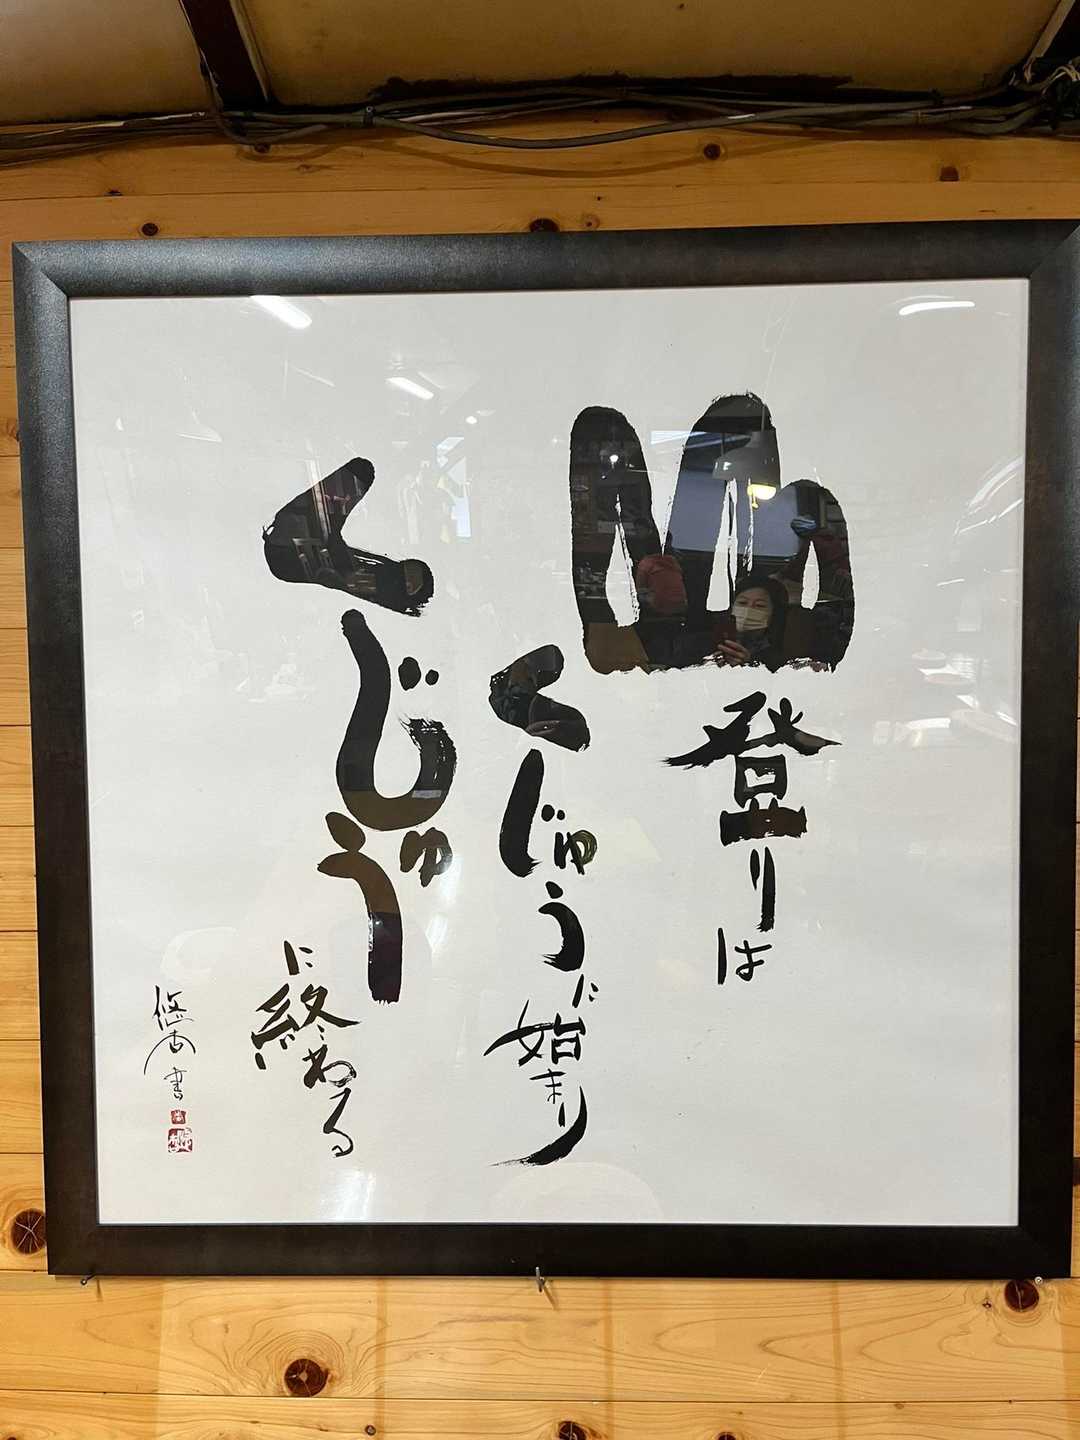 山登りは
くじゅうに始まり
くじゅうに終わる
悠杏書